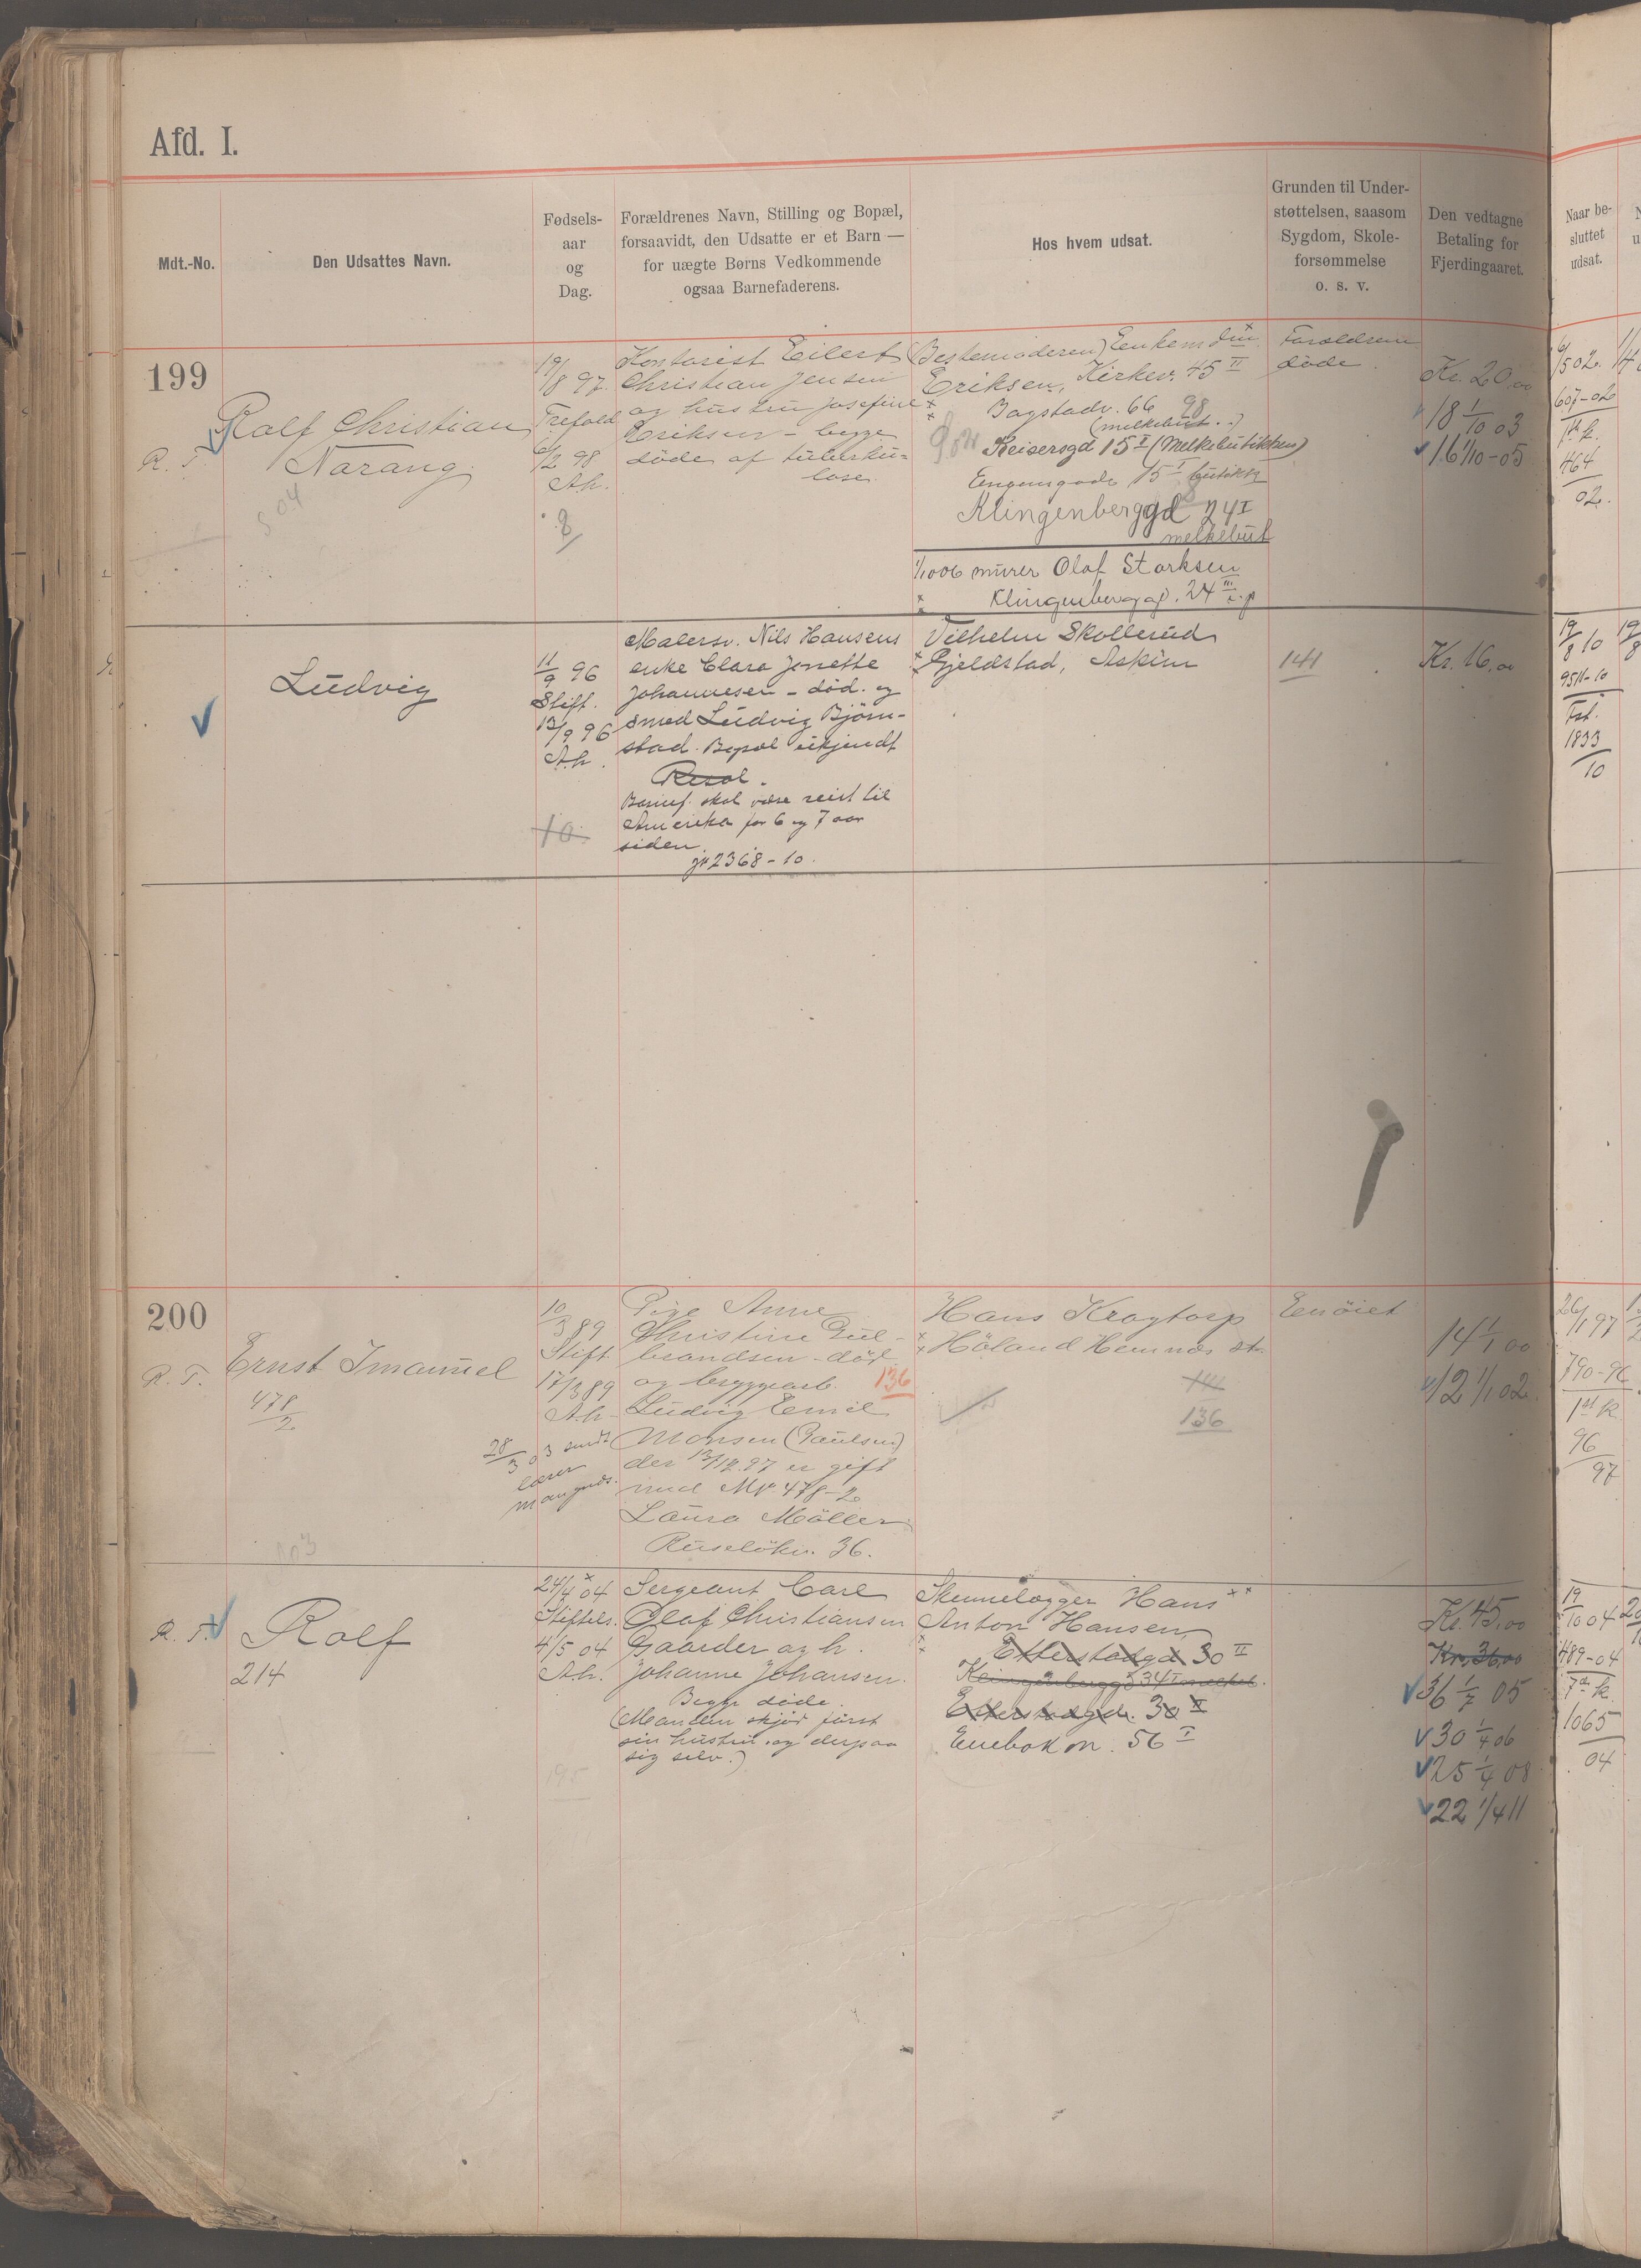 Afd. I.
Mdt.-No.
Den Udsattes Navn.
Fødsels-
aar
og
Dag.
Forældrenes Navn, Stilling og Bopæl,
forsaavidt, den Udsatte er et Barn —
for uægte Børns Vedkommende
ogsaa Barnefaderens.
Hos hvem udsat.
Grunden til Under-
støttelsen, saasom
Sygdom, Skole-
forsømmelse
o. s. v.
Den vedtagne
Betaling for
Fjerdingaaret.
Naar be-
sluttet
udsat.
199
R. T.
Rolf Christian
Narang
19/8 97.
Trefold
6/2 98
A.h.
8
Kontorist Eilert
Christian Jensen
og hustru Josefine
Eriksen - begge
døde af tuberku=
lose.
(Bestemoderen) Enkem
Eriksen, Kirkev. 45 II
Bogstadv. 66 98
(melkebut..)
Keisersgd 15 I (Melkebutikken)
15 I butikk
Klingenberggd 24 I
melkebut
1/10 06 murer Olaf Storksen
Klingenberggd. 24 III
Forældrene
døde.
Kr. 20,00
18 1/10 03
16 1/10-05
6/5 02.
607-02
7de k.
464
02.
Ludvig
11/9 96
Stift.
13/9 96
A.h.
10.
Malersv. Nils Hansens
enke Clara Jonette
Johannesen - död. og
smed Ludvig Björn-
stad. Bopæl ukjendt
Resol.
Barnef. skal være reist til
Amerika for 6 og 7 aar
siden.
jr 2368-10.
Vilhelm Skollerud
Gjeldstad, Askim
141
Kr. 16,00
19/8 10
9511-10
Fst.
1833
10
200
R. T.
Ernst Imanuel
478
2
10/3 89
Stift
17/3 89
A.h.
28/3 03 sendt
Pige Anne
Christine Gul-
brandsen - död
og bryggearb. 136
Ludvig Emil
Monsen (Paulsen)
der 12/12.97 er gift
med Mr 478-2
Laura Möller
Ruselökv. 36.
Hans Kragtorp
Höland Hemnæs st.
141
136
Enöiet
14 1/1 00
12 1/1 02
26/1 97
790-96
1st k
96
97
R. T.
Rolf
214
24/4 04
Stiftels.
4/5 04
A.h.
195
Sergeant Carl
Olaf Christiansen
Gaarder og h.
Johanne Johansen.
Begge döde.
(Manden skjöd först
sin hustru og derpaa
sig selv.)
Skinnelægger Hans
Anton Hansen
Etterstadgd. 30 II
Klingenberggd 34 I melkeb.
Etterstadgd. 30 II
Enebakv. 56 I
Kr. 45,00
Kr. 36,00
36 1/7 05
30 1/4 06
25 1/4 08
22 1/4 11
19/10 04
489-04
7de k.
1065
04